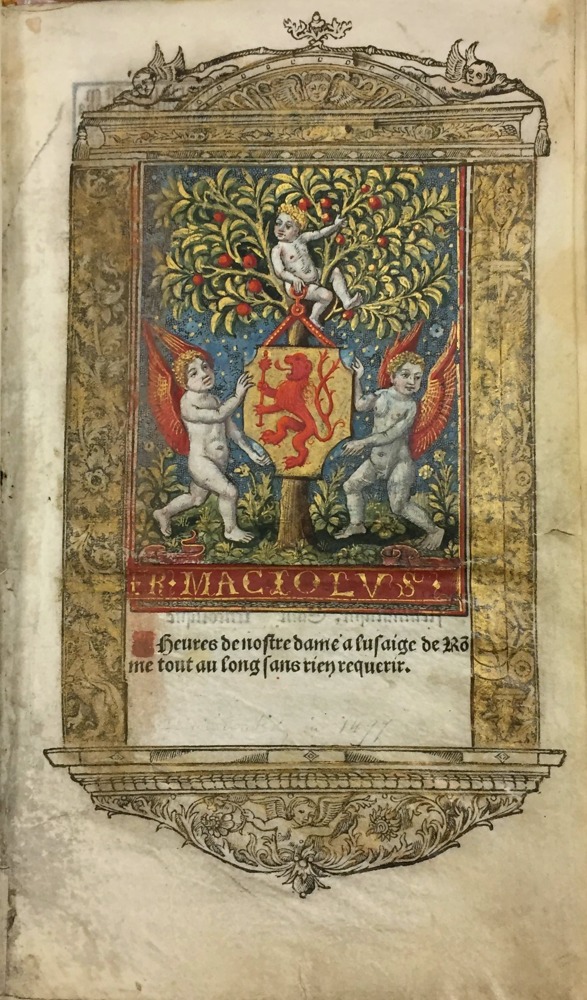 FR · MACIOLVS ·
Heures de nostre dame a lusaige de Rō
me tout au long sans rien requerir.
1497